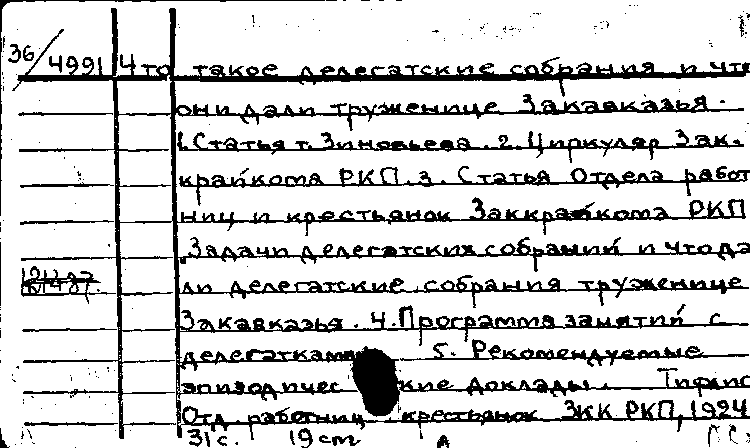 36/4991 Что такое делегатские собрания и что
они дали труженице Закавказья.
1. Статья т. Зиновьева. 2. Циркуляр Зак.
крайкома РКП. 3. Статья Отдела работ
ниц и крестьянок Заккрайкома РКП
„Задачи делегатских собраний и что да
ли делегатские собрания труженице
Закавказья. 4. Программа занятий с
делегатками 5. Рекомендуемые
эпизодические доклады. Тифлис
Отд. работниц крестьянок ЗКК РКП, 1924
31 с. 19 cm